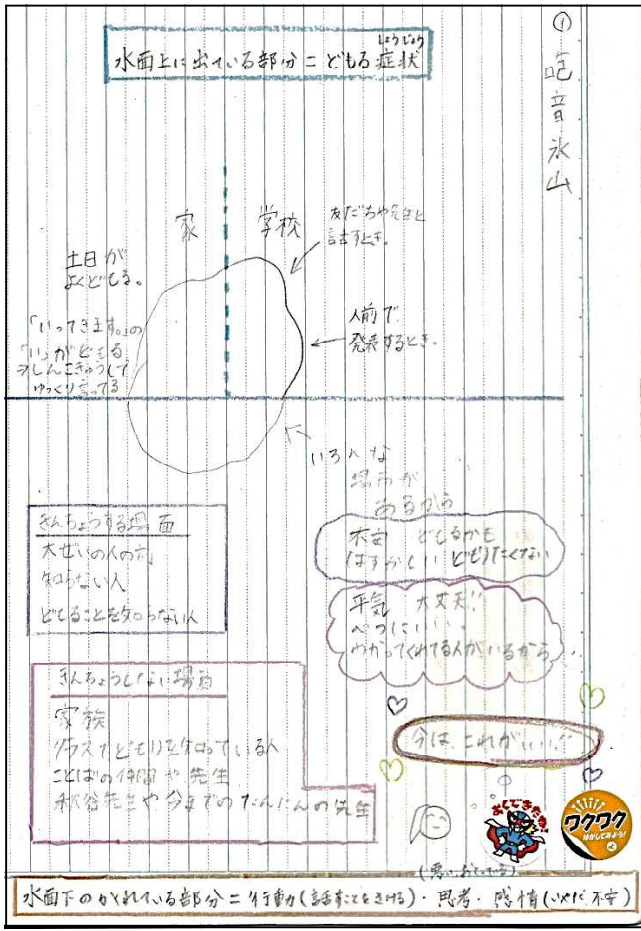 ① 吃音氷山
水面上に出ている部分＝どもる症状
しょうじょう
家
学校
友だちや先生と
話すとき。
土日が
よくどもる。
人前で
発表するとき。
「いってきます。」の
「い」がどもる
しんこきゅうして
ゆっくり言ってる
いろんな
場面が
あるから
きんちょうする場面
大ぜいの人の前
知らない人
どもることを知らない人
不安 どもるかも
はずかしい どもりたくない
平気 大丈夫!!
べつにいい・・
わかってくれてる人がいるから
きんちょうしない場面
家族
クラスでどもりを知っている人
ことばの仲間や先生
秋谷先生や今までのたんにんの先生
今は、これがいい!!
よくできたき!
ワクワク
水面下のかくれている部分＝行動(話すことをさける)・思考・感情(いやだ 不安)